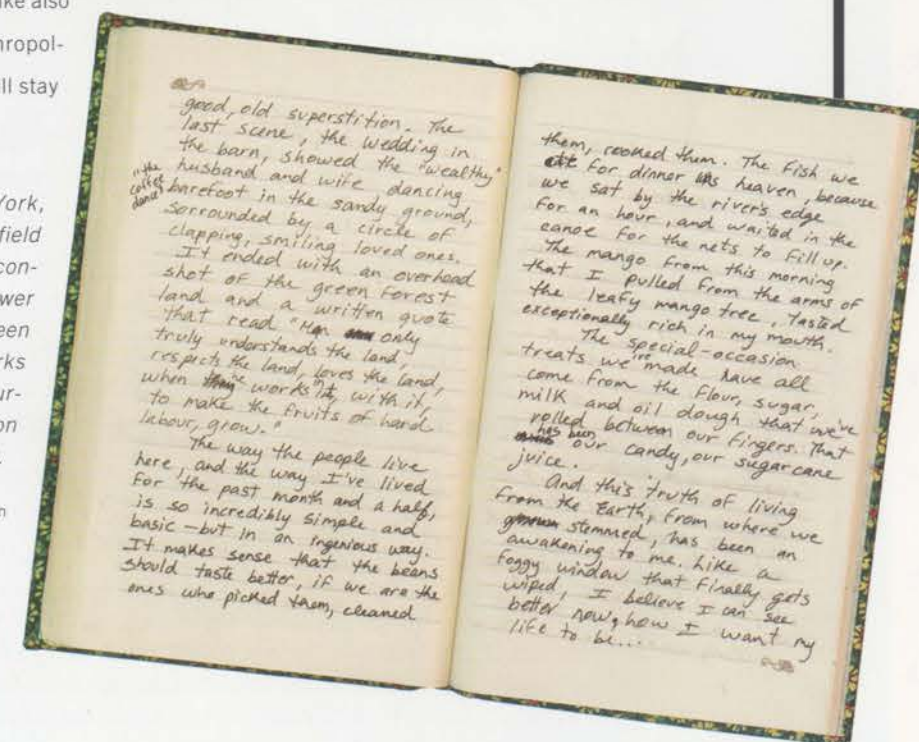 ke also
hropol-
ll stay
York,
field
con-
wer
een
rks
ur-
on
h
good, old superstition. The
last scene, the wedding in
the barn, showed the "wealthy"
husband and wife dancing
"the
coffee
dance"
barefoot in the sandy ground,
sorrounded by a circle of
clapping, smiling loved ones.
It ended with an overhead
shot of the green forest
land and a written quote
that read "Man only
truly understands the land,
respects the land, loves the land,
when he works it, with it,
to make the fruits of hard
labour, grow."
The way the people live
here, and the way I've lived
for the past month and a half,
is so incredibly simple and
basic – but in an ingenious way.
It makes sense that the beans
should taste better, if we are the
ones who picked them, cleaned
them, cooked them. The fish we
ate for dinner was heaven, because
we sat by the river's edge
for an hour, and waited in the
canoe for the nets to fill up.
The mango from this morning
that I pulled from the arms of
the leafy mango tree, tasted
exceptionally rich in my mouth.
The special-occasion
treats we've made have all
come from the flour, sugar,
milk and oil dough that we've
rolled between our fingers. That
has been our candy, our sugarcane
juice.
And this truth of living
from the Earth, from where we
stemmed, has been an
awakening to me. Like a
foggy window that finally gets
wiped, I believe I can see
better now, how I want my
life to be...